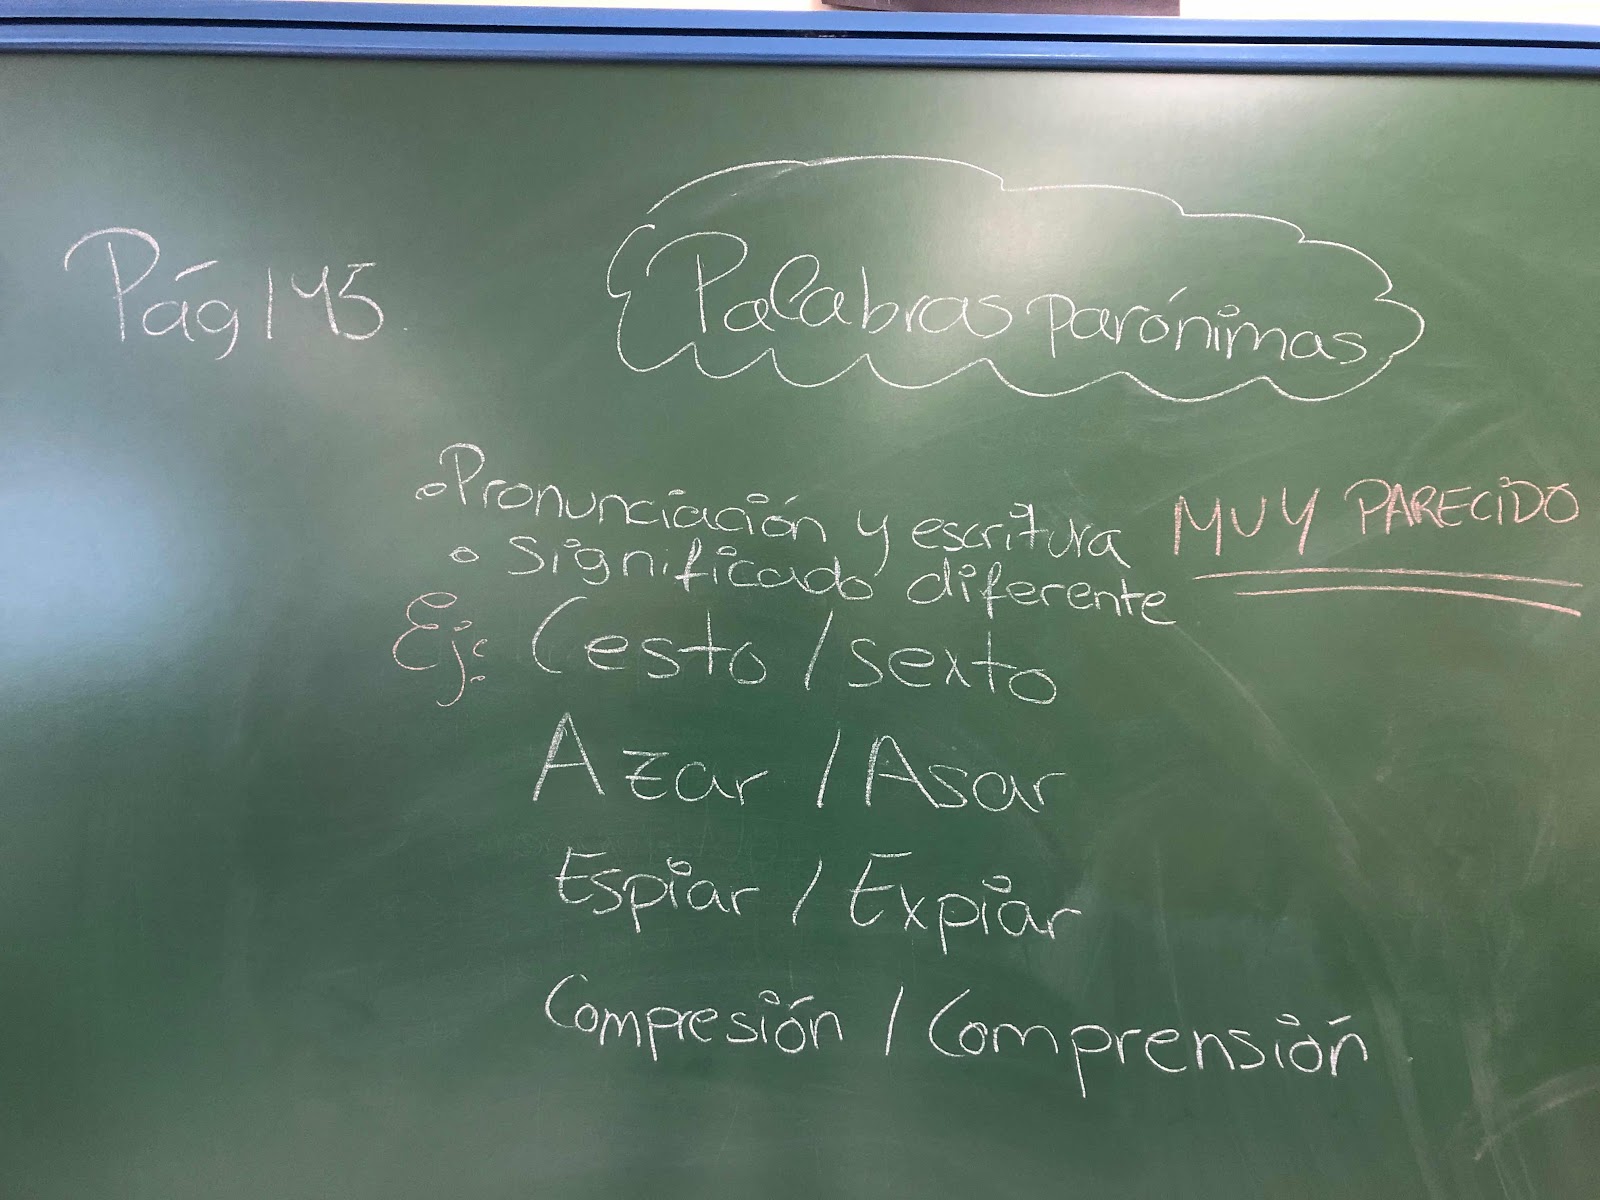 Pág 145.
Palabras parónimas
Pronunciación y escritura MUY PARECIDO
Significado diferente
Ej: Cesto / sexto
Azar / Asar
Espiar / Expiar
Compresión / Comprensión